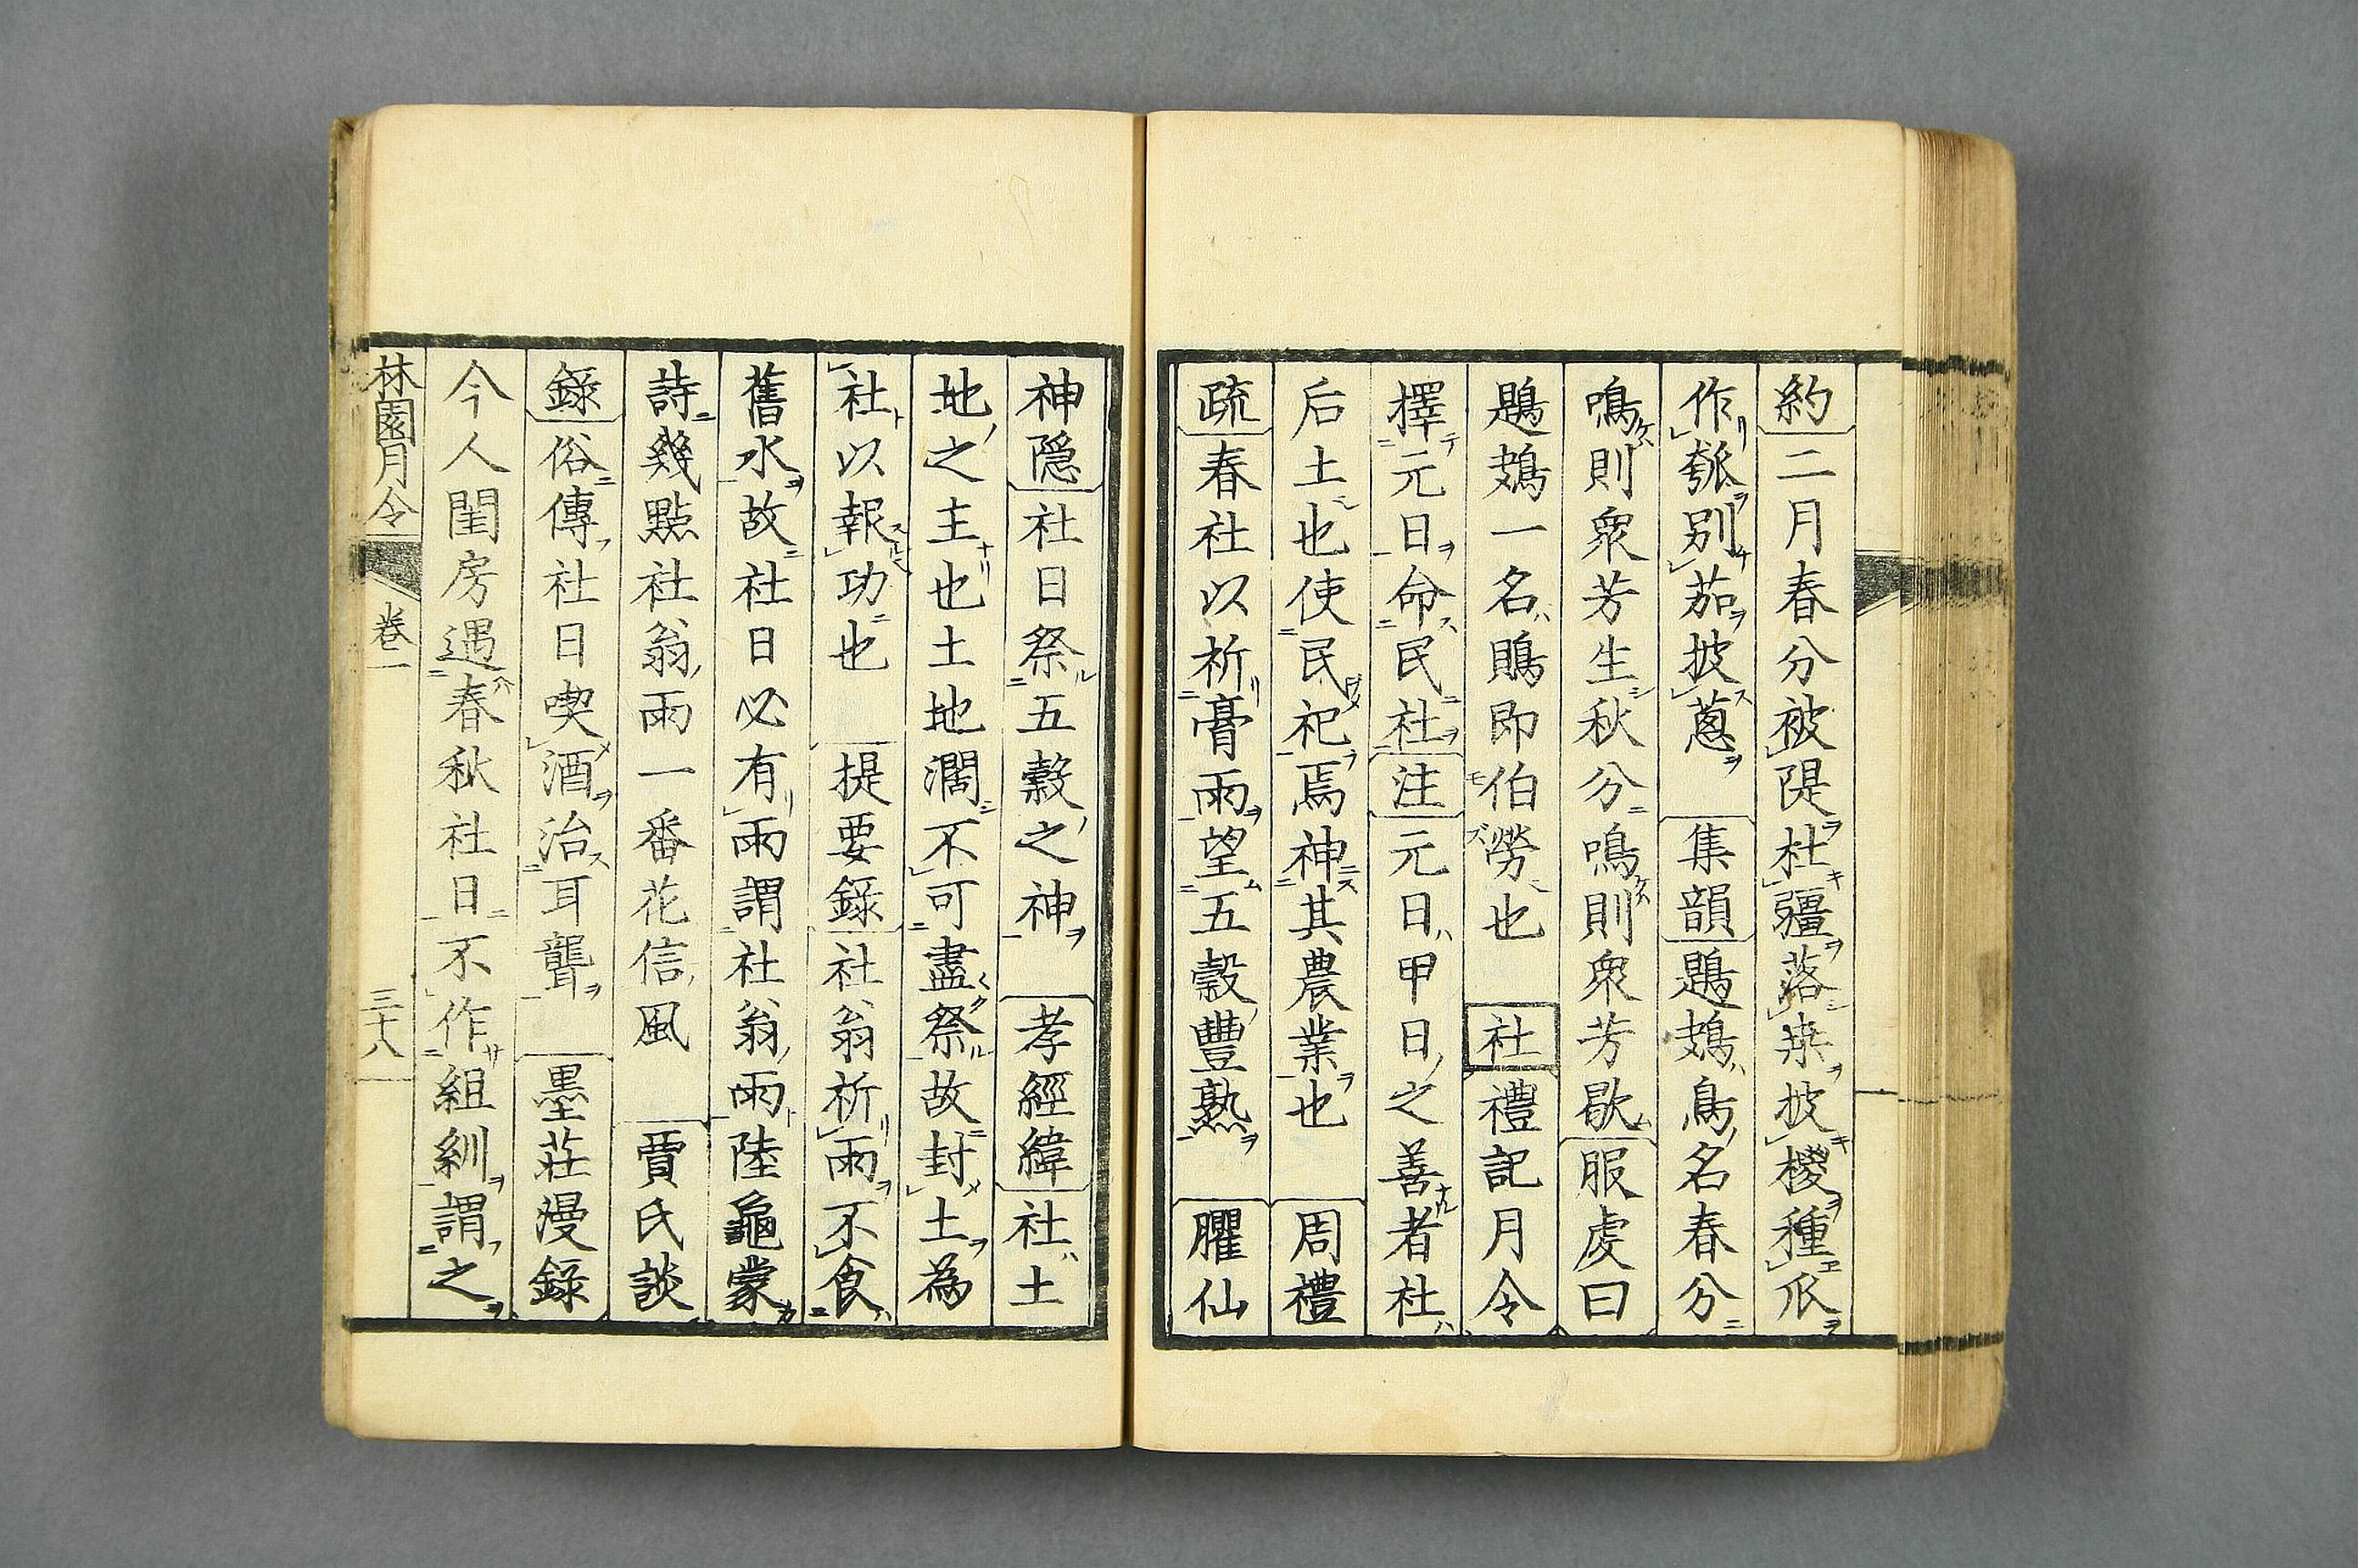 約二月春分被隄杜疆落桒披櫻種瓜
作瓠別茄披蔥 集韻鶗鴂鳥名春分
鳴則衆芳生秋分鳴則衆芳歇服虔曰
鶗鴂一名鵙即伯勞也 社禮記月令
擇元日命民社注元日甲日之善者社
后土也使民祀焉神其農業也 周禮
疏春社以祈膏雨望五穀豐熟 臞仙
神隠社日祭五穀之神 孝經緯社土
地之主也土地濶不可盡祭故封土為
社以報功也 提要錄社翁祈雨不食
舊水故社日必有雨謂社翁雨陸龜蒙
詩幾點社翁雨一番花信風 賈氏談
錄俗傳社日喫酒治耳聾 墨莊漫錄
今人閨房遇春秋社日不作組紃謂之
林園月令 卷一 三十八